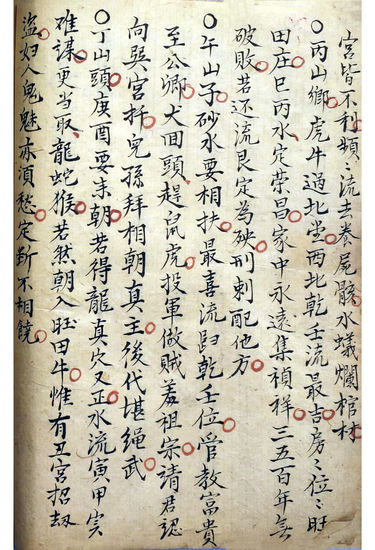 宮皆不利頻〻流去卷屍骸水蟻爛棺材
○丙山鄉虎牛過北堂西北乾壬流最吉房〻位〻旺
田庄巳丙水定荣昌家中永遠集禎祥三五百年無
破敗若还流艮定為殃刑刺配他方
○午山子砂水要相扶最喜流歸乾壬位管教富貴
至公卿犬回頭趕鼠虎投軍做賊羞祖宗請君認
向巽宮扦兒孫拜相朝真主後代堪绳武
○丁山頭庚酉要耒朝若得龍真穴又正水流寅甲实
难謀更当取龍蛇猴若然朝入旺田牛惟有丑宮招劫
盗妇人鬼魅亦須愁定断不相饒